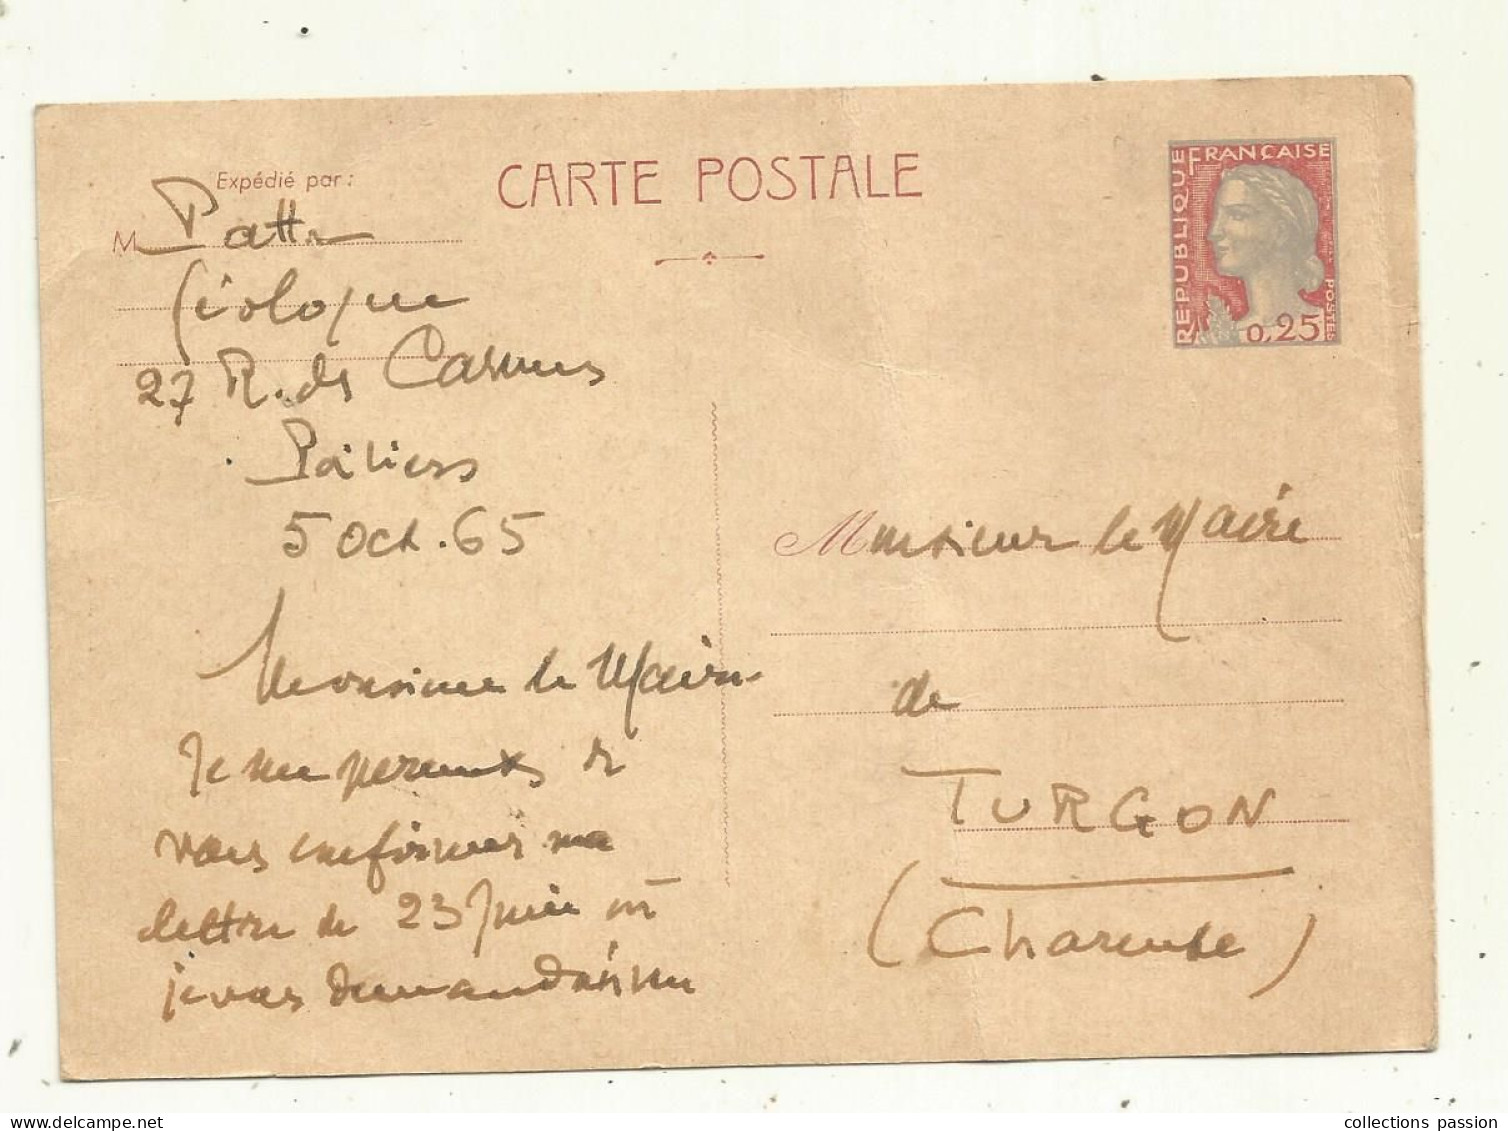 Expédié par :
CARTE POSTALE
RÉPUBLIQUE FRANÇAISE
POSTES
0,25
M Patte
Géologue
27 R. des Carmes
Poitiers
5 Oct. 65
Monsieur le Maire
Je me permets de
vous confirmer ma
lettre de 23 Juin où
je vous demandais
Monsieur le Maire
de
TURGON
(Charente)
collections passion